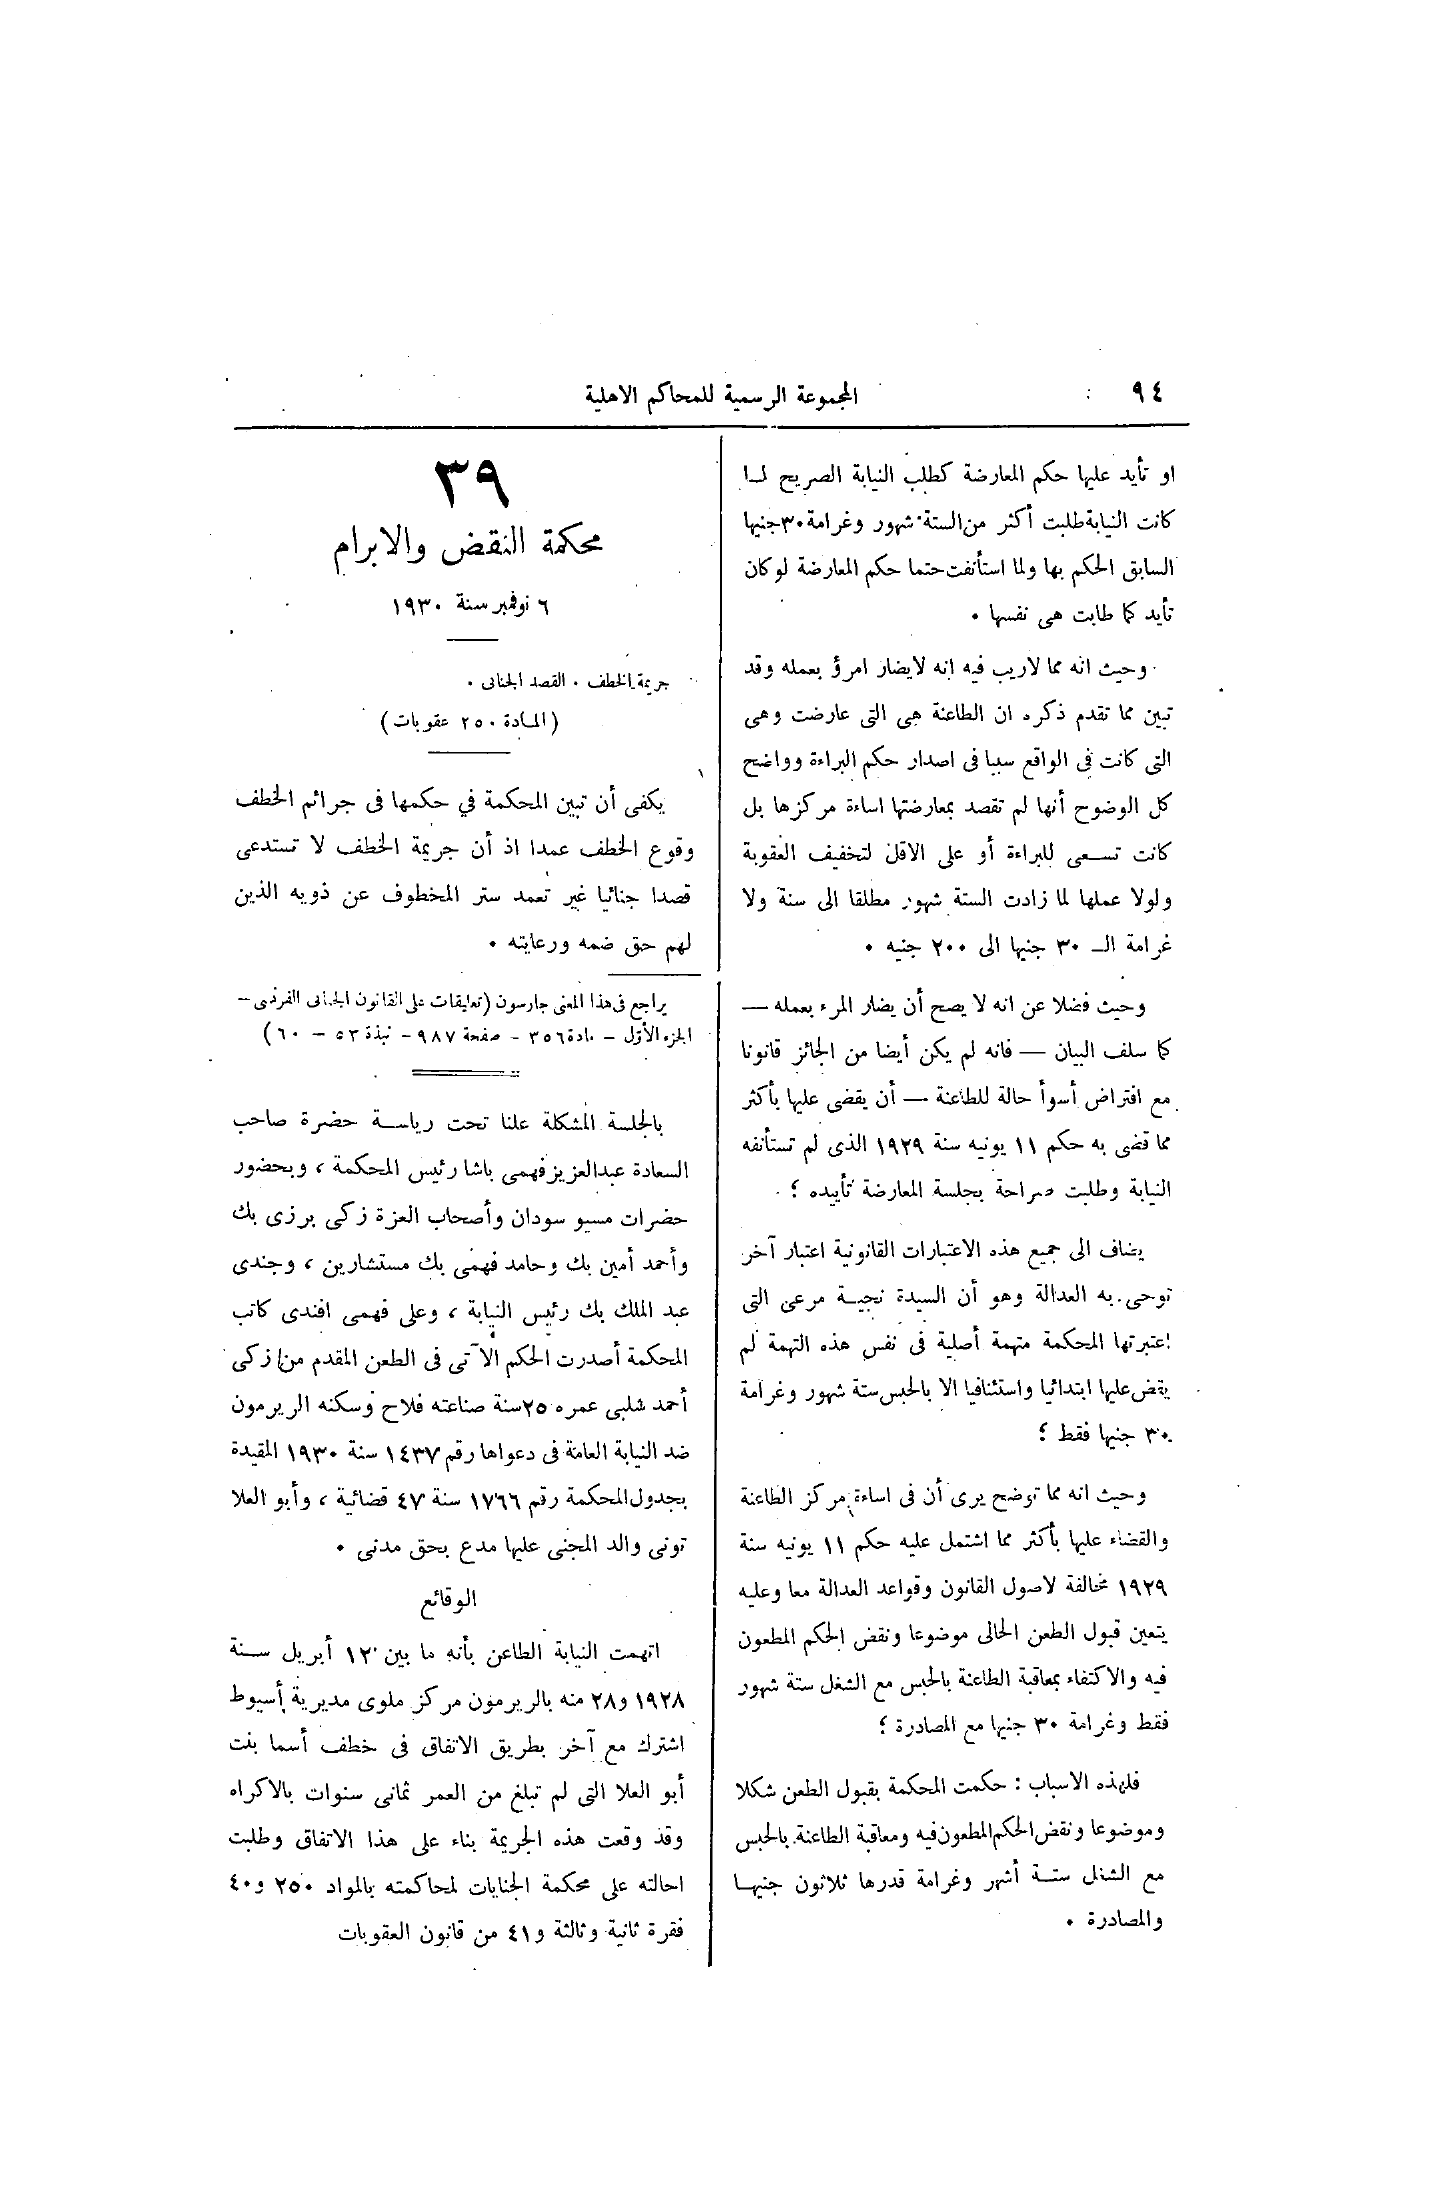 ٩٤
المجموعة الرسمية للمحاكم الاهلية
او تأيد عليها حكم المعارضة كطلب النيابة الصريح لما
كانت النيابة طلبت أكثر من الستة شهور وغرامة ٣٠ جنيها
السابق الحكم بها ولما استأنفت حتما حكم المعارضة لو كان
تأيد كما طابت هى نفسها .
وحيث انه مما لاريب فيه انه لايضار امرؤ بعمله وقد
تبين مما تقدم ذكره ان الطاعنة هى التى عارضت وهى
التى كانت فى الواقع سببا فى اصدار حكم البراءة وواضح
كل الوضوح أنها لم تقصد بمعارضتها اساءة مركزها بل
كانت تسعى للبراءة أو على الاقل لتخفيف العقوبة
ولولا عملها لما زادت الستة شهور مطلقا الى سنة ولا
غرامة الـ ٣٠ جنيها الى ٢٠٠ جنيه .
وحيث فضلا عن انه لا يصح أن يضار المرء بعمله —
كما سلف البيان — فانه لم يكن أيضا من الجائز قانونا
مع افتراض أسوأ حالة للطاعنة — أن يقضى عليها بأكثر
مما قضى به حكم ١١ يونيه سنة ١٩٢٩ الذى لم تستأنفه
النيابة وطلبت صراحة بجلسة المعارضة تأييده ؛
يضاف الى جميع هذه الاعتبارات القانونية اعتبار آخر
توحى به العدالة وهو أن السيدة نجيـة مرعى التى
اعتبرتها المحكمة متهمة أصلية فى نفس هذه التهمة لم
يقض عليها ابتدائيا واستئنافيا الا بالحبس ستة شهور وغرامة
٣٠ جنيها فقط ؛
وحيث انه مما توضح يرى أن فى اساءة مركز الطاعنة
والقضاء عليها بأكثر مما اشتمل عليه حكم ١١ يونيه سنة
١٩٢٩ مخالفة لاصول القانون وقواعد العدالة معا وعليه
يتعين قبول الطعن الحالى موضوعا ونقض الحكم المطعون
فيه والاكتفاء بمعاقبة الطاعنة بالحبس مع الشغل ستة شهور
فقط وغرامة ٣٠ جنيها مع المصادرة ؛
فلهذه الاسباب : حكمت المحكمة بقبول الطعن شكلا
وموضوعا ونقض الحكم المطعون فيه ومعاقبة الطاعنة بالحبس
مع الشغل ستـة أشهر وغرامة قدرها ثلاثون جنيهـا
والمصادرة .
٣٩
محكمة النقض والابرام
٦ نوفمبر سنة ١٩٣٠
جريمة الخطف . القصد الجنائى .
(المادة ٢٥٠ عقوبات)
يكفى أن تبين المحكمة في حكمها فى جرائم الخطف
وقوع الخطف عمدا اذ أن جريمة الخطف لا تستدعى
قصدا جنائيا غير تعمد ستر المخطوف عن ذويه الذين
لهم حق ضمه ورعايته .
يراجع فى هذا المعنى جارسون (تعليقات على القانون الجنائى الفرنسى —
الجزء الأول — مادة ٣٥٦ — صفحة ٩٨٧ — نبذة ٥٣ — ٦٠)
بالجلسة المشكلة علنا تحت رياسـة حضرة صاحب
السعادة عبدالعزيز فهمى باشا رئيس المحكمة ، وبحضور
حضرات مسيو سودان وأصحاب العزة زكى برزى بك
وأحمد أمين بك وحامد فهمى بك مستشارين ، وجندى
عبد الملك بك رئيس النيابة ، وعلى فهمى افندى كاتب
المحكمة أصدرت الحكم الآتى فى الطعن المقدم من زكى
أحمد شلبى عمره ٢٥ سنة صناعته فلاح وسكنه الريرمون
ضد النيابة العامة فى دعواها رقم ١٤٣٧ سنة ١٩٣٠ المقيدة
بجدول المحكمة رقم ١٧٦٦ سنة ٤٧ قضائية ، وأبو العلا
تونى والد المجنى عليها مدع بحق مدنى .
الوقائع
اتهمت النيابة الطاعن بأنه ما بين ١٢ أبريل سـنة
١٩٢٨ و٢٨ منه بالريرمون مركز ملوى مديرية أسيوط
اشترك مع آخر بطريق الاتفاق فى خطف أسما بنت
أبو العلا التى لم تبلغ من العمر ثمانى سنوات بالاكراه
وقد وقعت هذه الجريمة بناء على هذا الاتفاق وطلبت
احالته على محكمة الجنايات لمحاكمته بالمواد ٢٥٠ و٤٠
فقرة ثانية وثالثة و٤١ من قانون العقوبات